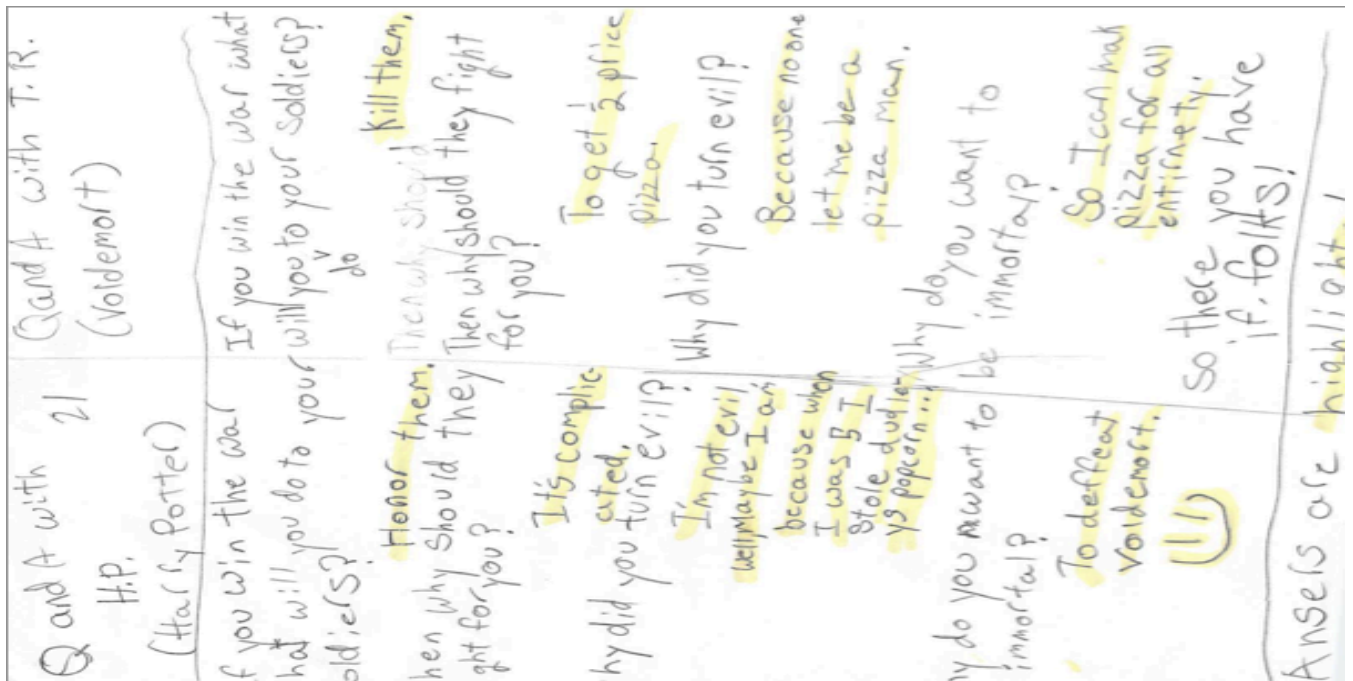 Q and A with 21
H.P.
(Harry Potter)
f you win the war
hat will you do to your
oldiers?
Honor them.
hen why should they
ght for you?
It's complic-
ated.
hy did you turn evil?
I'm not evil
well maybe I am
because when
I was 5 I
stole dudle
ys popcorn...
y do you want to be
immortal?
To deffeat
voldemort.
Q and A with T.R.
(Voldemort)
If you win the war what
will you to your soldiers?
do
Kill them.
Then why should
Then why should they fight
for you?
To get 1/2 price
pizza.
Why did you turn evil?
Because no one
let me be a
pizza man.
Why do you want to
immortay?
So I can mak
pizza for all
entirnety.
So there you have
if. folks!
Ansers are highlight